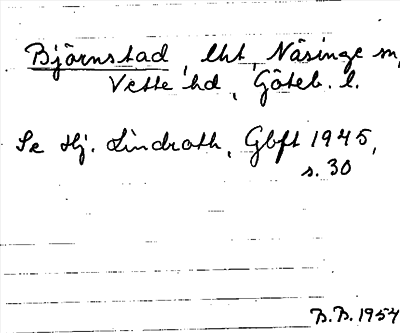 Björnstad, lht, Näsinge sn,
Vette hd, Göteb. l.
Se Hj. Lindroth, Gbft 1945,
s. 30
B.B. 1954